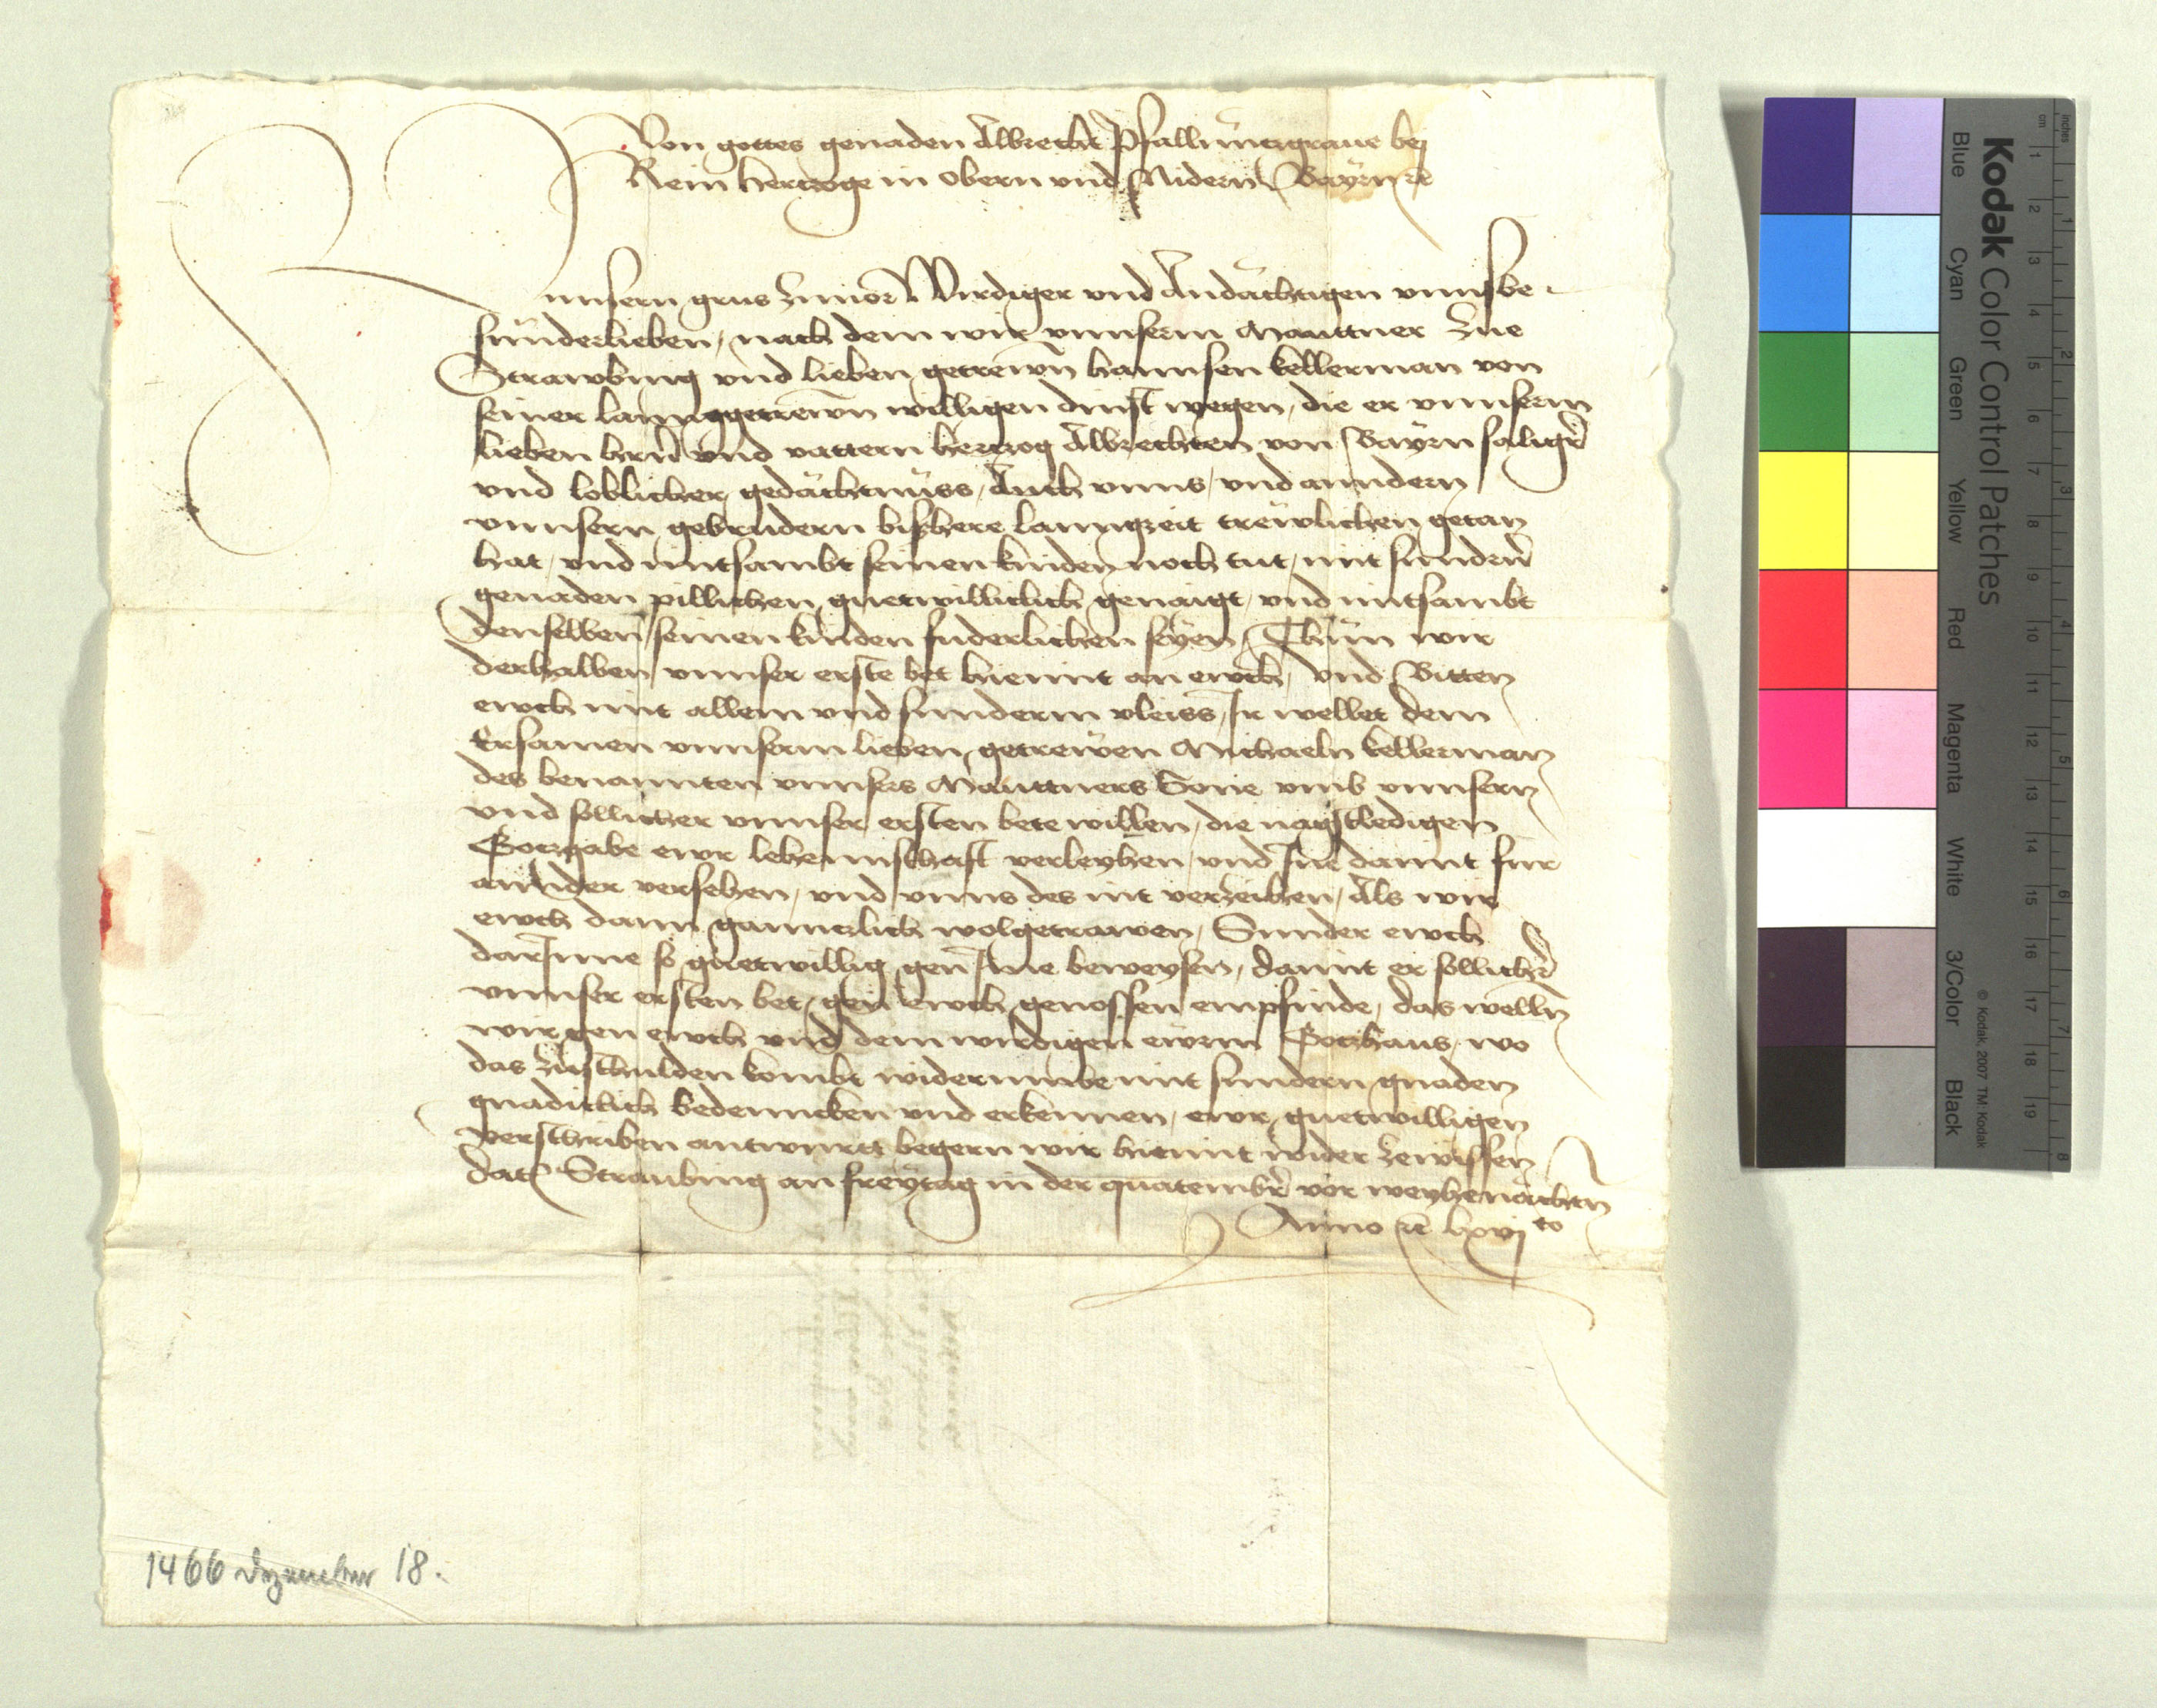 Von gottes genaden Albrecht Pfallnntzgraue bej
Rein hertzoge in obern vnd Nidern Bayrn ꝛc
vnnsern grus zuuor Wirdiger vnd Andächtigen vnns be-
sunderlieben, nach dem wir vnnserm Mauttner zue
Strawbing vnd lieben getrewn hannsen kellerman von
seiner lanng getrewn willigen dinst wegen, die er vnnserm
lieben hern vnd vattern hertzog Albrechten von Bayrn säliger
vnd loblicher gedächtnüss, Auch vnns, vnd anndern
vnnsern gebrudern bisshere lanngzeit trewlichen getan
hat, vnd mitsambt seinen kinden noch tut, mit sundern
genaden pillichen guetwilliclich genaigt, vnd mitsambt
denselben seinen kinden fuderlichen seyen, Thun wir
derhalben vnnser erste bet hiemit an ewch, vnd Bitten
ewch mit allem vnd sunderm vleiss, Ir wellet dem
Ersamen vnnserm lieben getrewen Michaeln kellerman
des benannten vnnsers Mauttners Sone vmb vnnsern
vnd sollicher vnnser ersten bete willen, die nagstledigen
Gotzgabe ewr lehennschaft verleyhen, vnd Ine damit fur
annder versehen, vnd vnns des nit verzeihen, Als wir
ewch dann gannczlich wolgetrawen, Sunder ewch
darInne so guetwillig gen Ime beweysen, damit er sollicher
vnnser ersten bet gen ewch genossen empfinde, das welln
wir gen ewch vnd dem wirdigen ewrm Gotzhaus, wo
das zuschulden kombt widerumbe mit sundern gnaden
gnadiclich bedenncken vnd erkennen, ewr guetwilligen
verschriben antwurtt begern wir hiemit wider zewissen
Dat Straubing an freytag in der quatember vor weyhenächten
Anno ꝛc lxvjto
1466 Dezember 18.
Kodak Color Control Patches
© Kodak, 2007 TM: Kodak
Blue Cyan Green Yellow Red Magenta White 3/Color Black
inches 1 2 3 4 5 6 7 8
cm 1 2 3 4 5 6 7 8 9 10 11 12 13 14 15 16 17 18 19